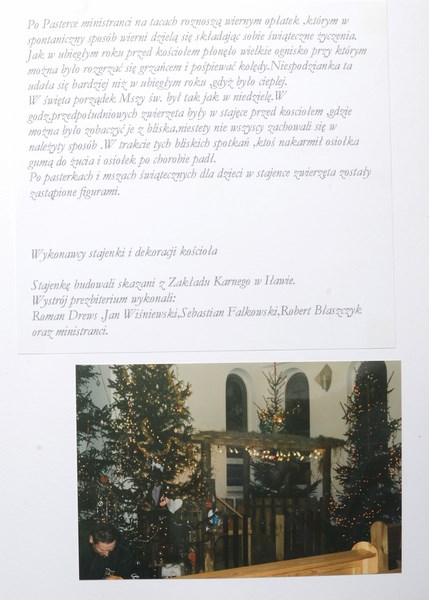 Po Pasterce ministranci na tacach roznoszą wiernym opłatek ,którym w
spontaniczny sposób wierni dzielą się składając sobie świąteczne życzenia.
Jak w ubiegłym roku przed kościołem płonęło wielkie ognisko przy którym
można było rozgrzać się grzańcem i pośpiewać kolędy.Niespodzianka ta
udała się bardziej niż w ubiegłym roku ,gdyż było cieplej.
W święta porządek Mszy św. był tak jak w niedzielę.W
godz.przedpołudniowych zwierzęta były w stajęce przed kosciołem ,gdzie
można było zobaczyć je z bliska,niestety nie wszyscy zachowali się w
należyty sposób .W trakcie tych bliskich spotkań ,ktoś nakarmił osiołka
gumą do żucia i osiołek po chorobie padł.
Po pasterkach i mszach świątecznych dla dzieci w stajence zwierzęta zostały
zastąpione figurami.
Wykonawcy stajenki i dekoracji kościoła
Stajenkę budowali skazani z Zakładu Karnego w Iławie.
Wystrój prezbiterium wykonali:
Roman Drews ,Jan Wiśniewski,Sebastian Falkowski,Robert Błaszczyk
oraz ministranci.